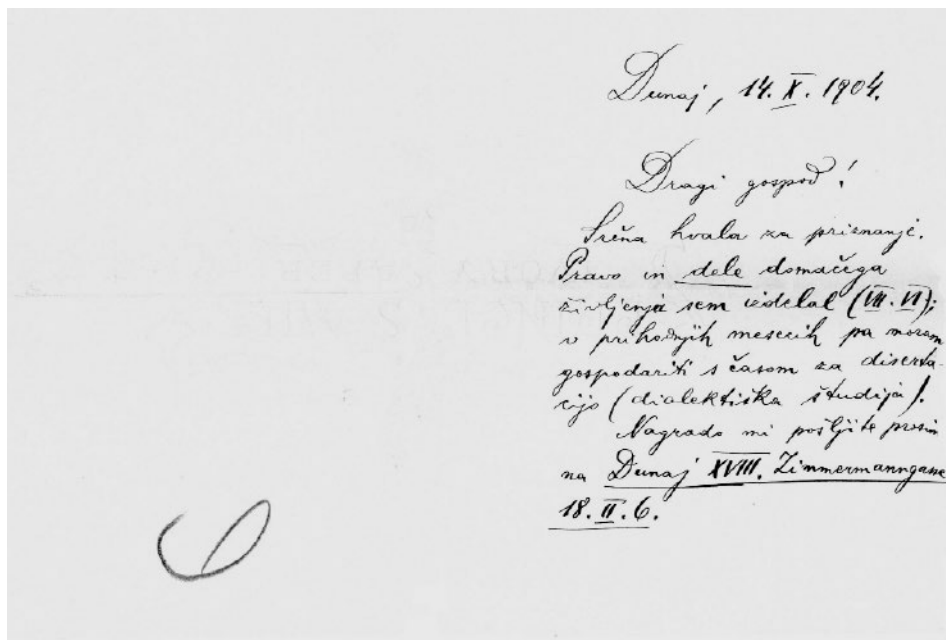 Dunaj, 14. X. 1904.
Dragi gospod!
Srčna hvala za priznanje.
Pravo in dele domačega
življenja sem izdelal (VII. VI);
v prihodnjih mesecih pa moram
gospodariti s časom za diserta-
cijo (dialektiška študija).
Nagrado mi pošljite prosim
na Dunaj XVIII. Zimmermanngasse
18. II. 6.